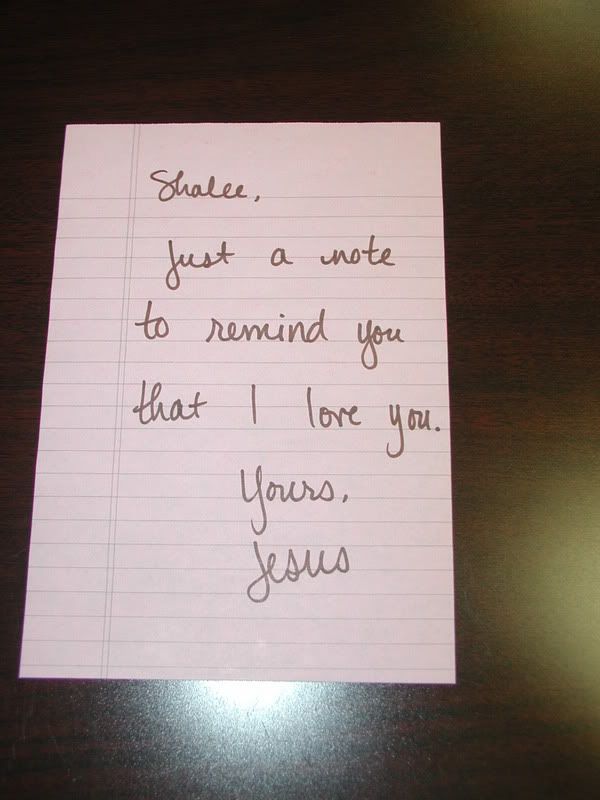 Shalee,
Just a note
to remind you
that I love you.
Yours,
Jesus